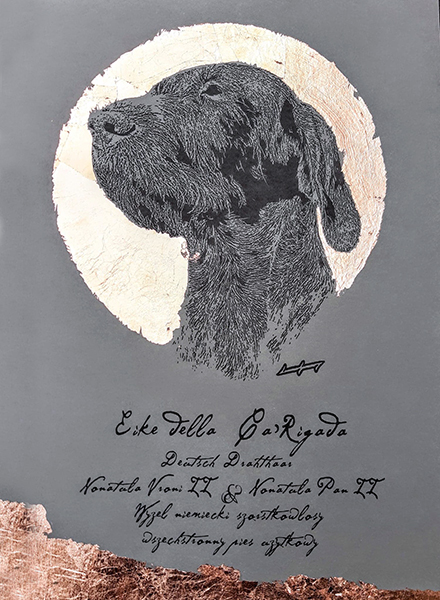 Eike della Ca'Rigada
Deutsch Drahthaar
Nonatula Vroni II & Nonatula Pan II
Wyżeł niemiecki szorstkowłosy
wszechstronny pies użytkowy